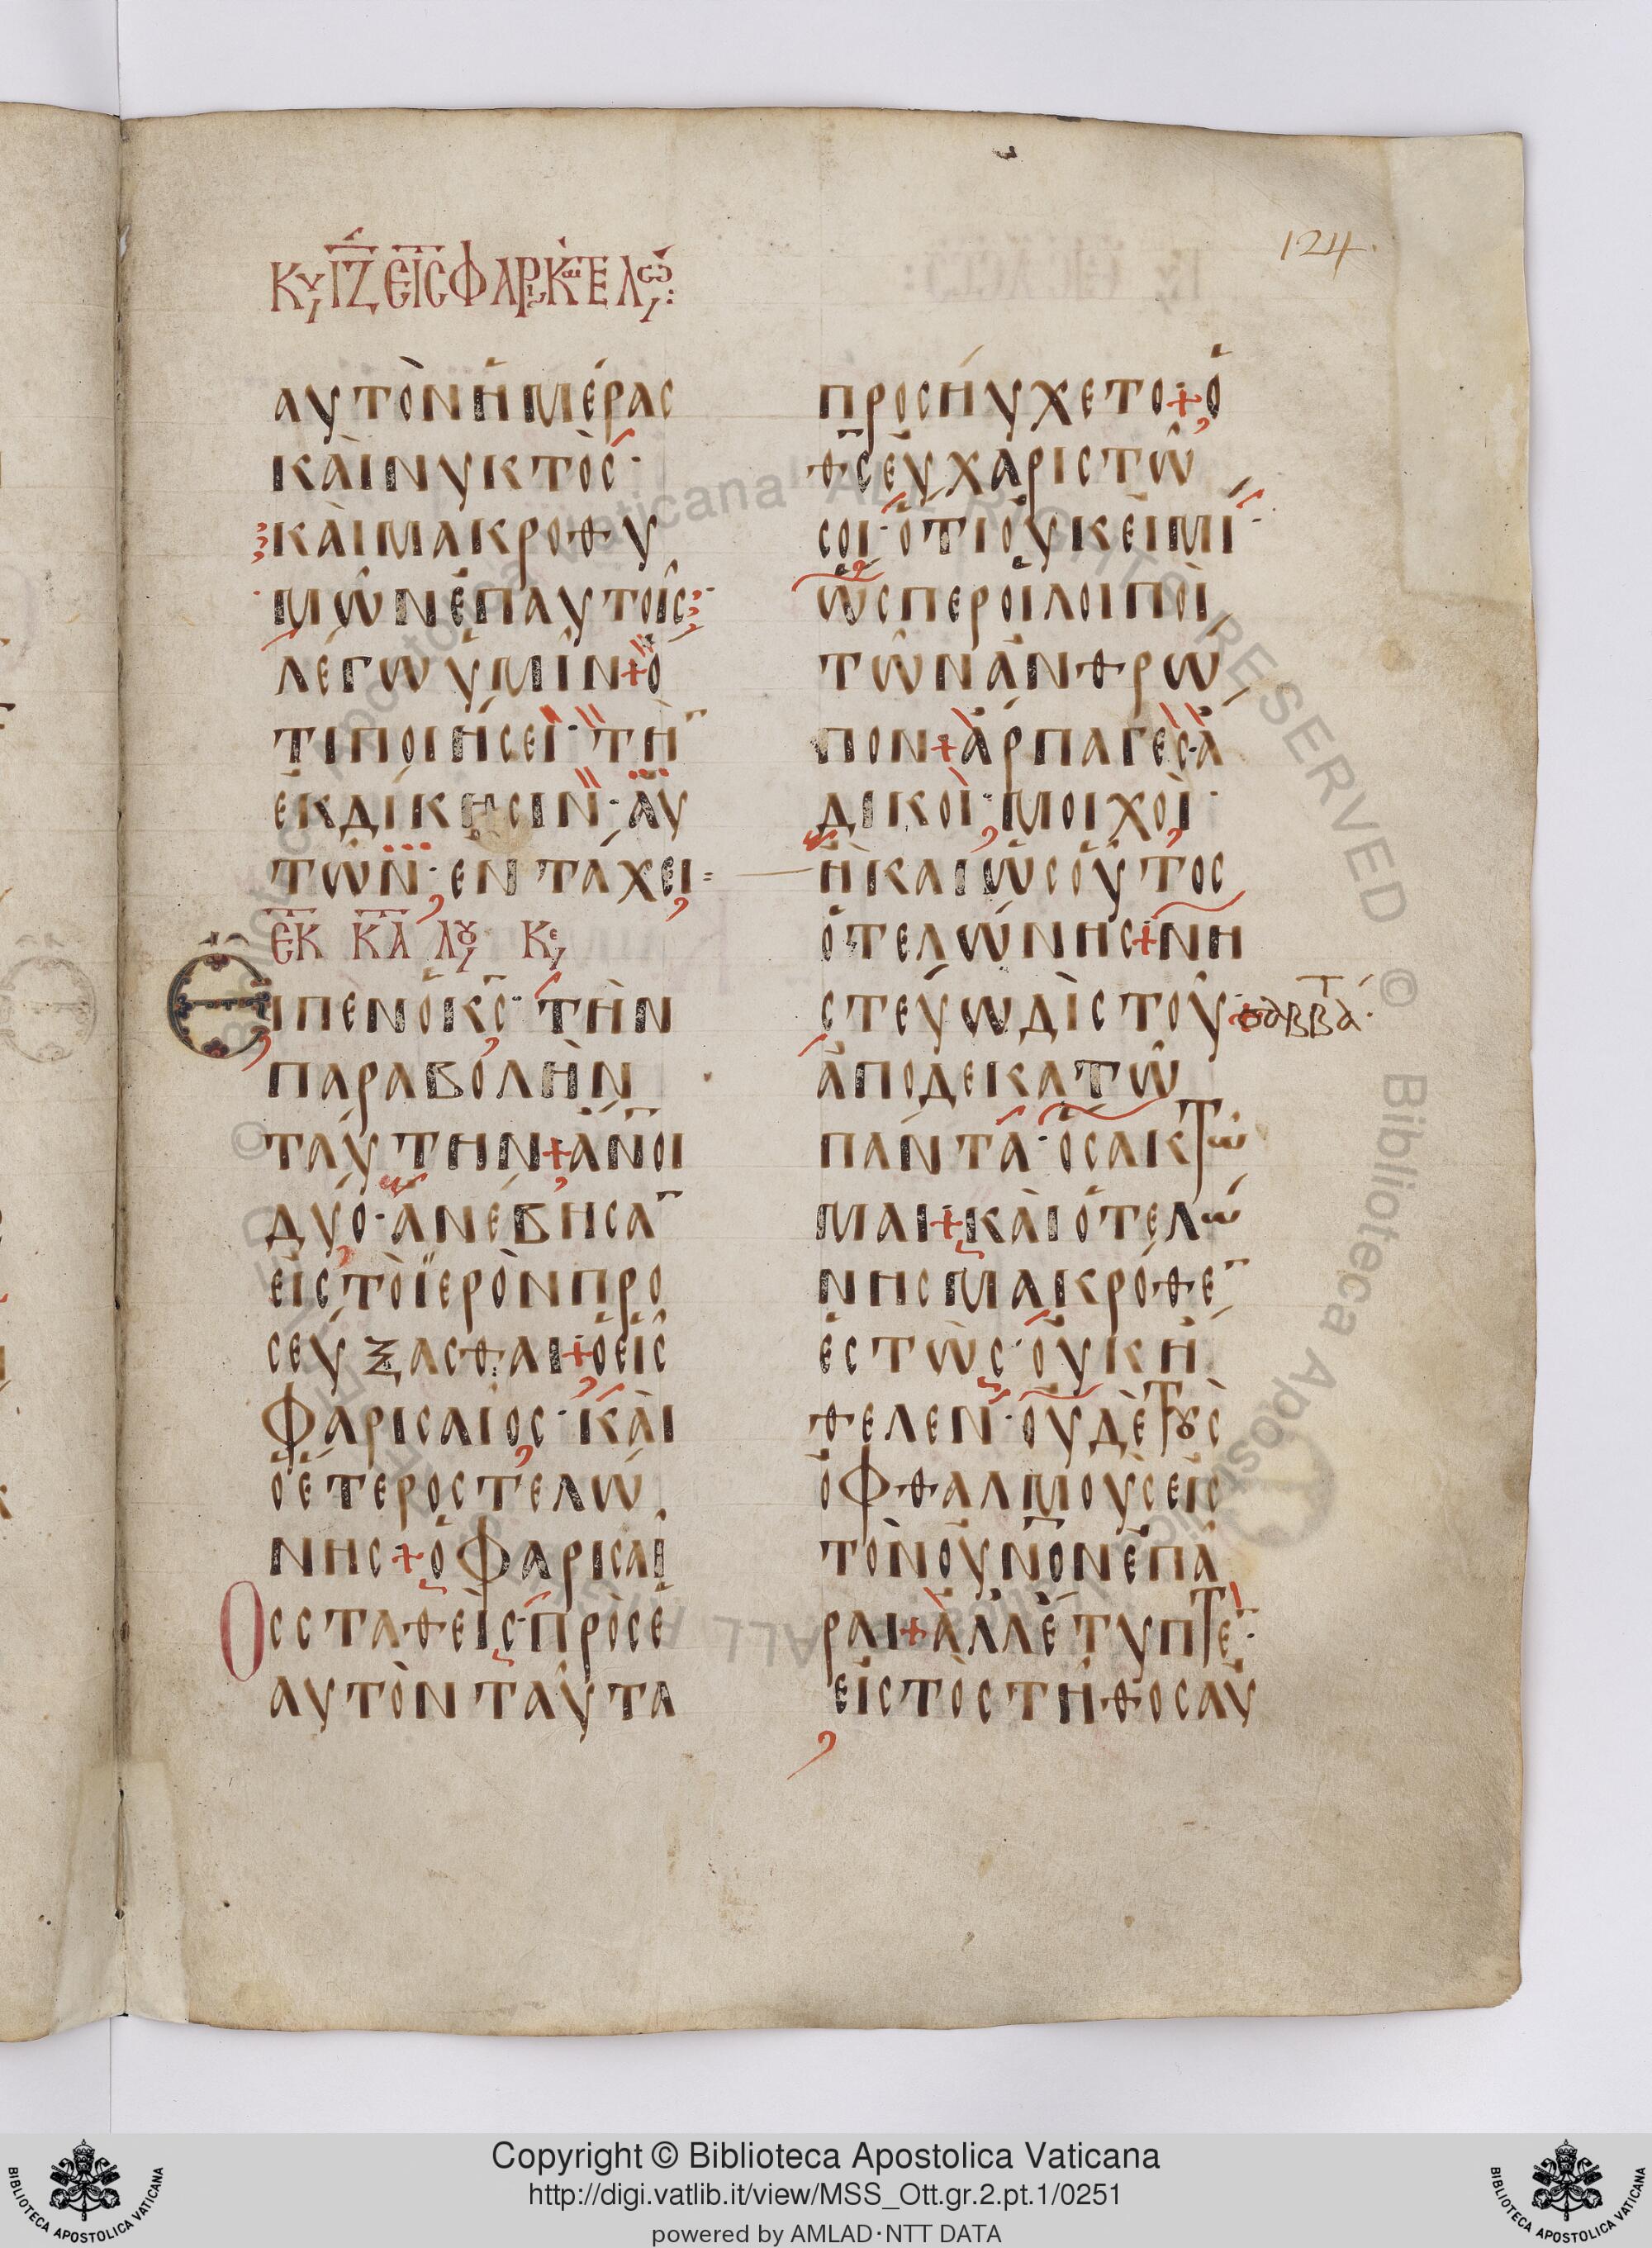 124.
Κυ ΙΖ ΕΙΣ ΦΑΡ Κ ΤΕΛΩ:
ΑΥΤῸΝ ἩΜΈΡΑΣ
ΚΑῚ ΝΥΚΤῸΣ·
ΚΑῚ ΜΑΚΡΟΘΥ
ΜΩ͂Ν ἘΠ ΑΥΤΟΙ͂Σ·
ΛΈΓΩ ὙΜΙ͂Ν + Ὅ
ΤΙ ΠΟΙΉΣΕΙ· ΤῊ̄
ἘΚΔΊΚΗΣΙΝ· ἈΥ
ΤΩ͂Ν· ἘΝ ΤΆΧΕΙ=
ΕΚ ΚΑ ΛΟΥ Κε
ΕΙΠΕΝ Ὁ ΚΣ· ΤῊΝ
ΠΑΡΑΒΟΛῊΝ
ΤΑΎΤΗΝ + ἈΝΟΙ
ΔΥΟ· ἈΝΈΒΗΣᾹ
ΕἸΣ ΤῸ ἹΕΡῸΝ ΠΡΟ
ΣΕΥΞΑΣΘΑΙ + Ὁ ΕἿΣ
ΦΑΡΙΣΑΙΟΣ· ΚΑῚ
Ὁ ἝΤΕΡΟΣ ΤΕΛΏ
ΝΗΣ + Ὁ ΦΑΡΙΣΑΙ͂
ΟΣ ΣΤΑΘΕῚΣ· ΠΡῸΣ Ἑ
ΑΥΤῸΝ ΤΑΥ͂ΤΑ
ΠΡΟΣΗΎΧΕΤΟ + Ὁ
ΘΣ ΕΥ̓ΧΑΡΙΣΤΩ͂
ΣΟΙ· ὍΤΙ ΟΥ̓Κ ΕἸΜΙ·
ὭΣΠΕΡ ΟἹ ΛΟΙΠΟῚ
ΤΩ͂Ν ἈΝΘΡΏ
ΠΟΝ + ἍΡΠΑΓΕΣ· Ἄ
ΔΙΚΟΙ· ΜΟΙΧΟῚ·
Ἢ ΚΑΙ ὩΣ ΟΥ͂ΤΟΣ
Ὁ ΤΕΛΏΝΗΣ + ΝΗ
ΣΤΕΎΩ ΔῚΣ ΤΟΥ͂ σαββά·
ἈΠΟΔΕΚΑΤΩ͂
ΠΆΝΤΑ· ὍΣΑ ΚΤΩ͂
ΜΑΙ + ΚΑῚ Ὁ ΤΕΛΏ
ΝΗΣ ΜΑΚΡΌΘΕ̄
ἙΣΤῺΣ· ΟΥ̓Κ Ἤ
ΘΕΛΕΝ· ΟΥ̓ΔῈ ΤΟΥΣ
ὈΦΘΑΛΜΟῪΣ ΕἸΣ
ΤῸΝ ΟΥ̓ΝΟΝ ἘΠΑ͂
ΡΑΙ + ἈΛΛ ἜΤΥΠΤΕ̄·
ΕἸΣ ΤῸ ΣΤΗ͂ΘΟΣ ΑΥ̓
Copyright © Biblioteca Apostolica Vaticana
http://digi.vatlib.it/view/MSS_Ott.gr.2.pt.1/0251
powered by AMLAD·NTT DATA
BIBLIOTECA APOSTOLICA VATICANA
BIBLIOTECA APOSTOLICA VATICANA